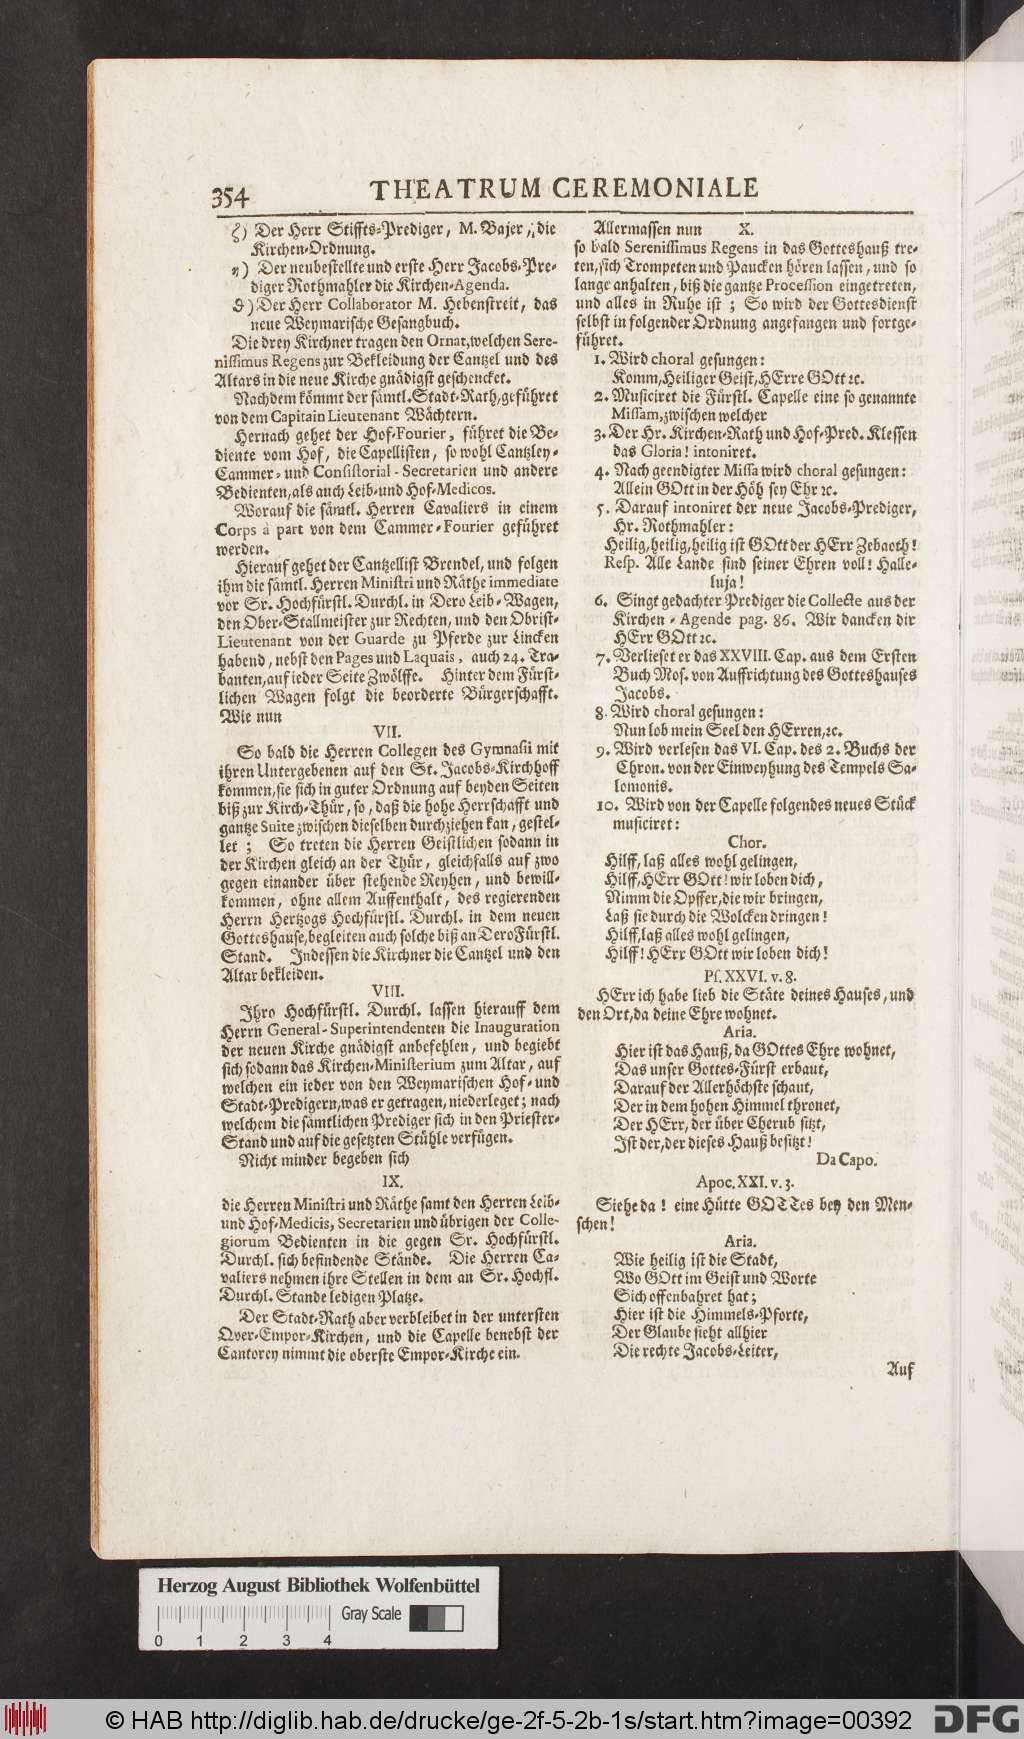 354
THEATRUM CEREMONIALE
ζ) Der Herr Stiffts-Prediger, M. Bajer, die
Kirchen-Ordnung.
η) Der neubestellte und erste Herr Jacobs-Pre-
diger Rothmahler die Kirchen-Agenda.
θ) Der Herr Collaborator M. Hebenstreit, das
neue Weymarische Gesangbuch.
Die drey Kirchner tragen den Ornat, welchen Sere-
nissimus Regens zur Bekleidung der Cantzel und des
Altars in die neue Kirche gnädigst geschencket.
Nachdem kömmt der sämtl. Stadt-Rath, geführet
von dem Capitain Lieutenant Wächtern.
Hernach gehet der Hof-Fourier, führet die Be-
diente vom Hof, die Capellisten, so wohl Cantzley-
Cammer- und Consistorial-Secretarien und andere
Bedienten, als auch Leib- und Hof-Medicos.
Worauf die sämtl. Herren Cavaliers in einem
Corps à part von dem Cammer-Fourier geführet
werden.
Hierauf gehet der Cantzellist Brendel, und folgen
ihm die sämtl. Herren Ministri und Räthe immediate
vor Sr. Hochfürstl. Durchl. in Dero Leib-Wagen,
den Ober-Stallmeister zur Rechten, und den Obrist-
Lieutenant von der Guarde zu Pferde zur Lincken
habend, nebst den Pages und Laquais, auch 24. Tra-
banten, auf ieder Seite Zwölffe. Hinter dem Fürst-
lichen Wagen folgt die beorderte Bürgerschafft.
Wie nun
VII.
So bald die Herren Collegen des Gymnasii mit
ihren Untergebenen auf den St. Jacobs-Kirchhoff
kommen, sie sich in guter Ordnung auf beyden Seiten
biß zur Kirch-Thür, so, daß die hohe Herrschafft und
gantze Suite zwischen dieselben durchziehen kan, gestel-
let; So treten die Herren Geistlichen sodann in
der Kirchen gleich an der Thür, gleichfalls auf zwo
gegen einander über stehende Reyhen, und bewill-
kommen, ohne allem Auffenthalt, des regierenden
Herrn Hertzogs Hochfürstl. Durchl. in dem neuen
Gotteshause, begleiten auch solche biß an Dero Fürstl.
Stand. Indessen die Kirchner die Cantzel und den
Altar bekleiden.
VIII.
Ihro Hochfürstl. Durchl. lassen hierauff dem
Herrn General-Superintendenten die Inauguration
der neuen Kirche gnädigst anbefehlen, und begiebt
sich sodann das Kirchen-Ministerium zum Altar, auf
welchen ein ieder von den Weymarischen Hof- und
Stadt-Predigern, was er getragen, niederleget; nach
welchem die sämtlichen Prediger sich in den Priester-
Stand und auf die gesetzten Stühle verfügen.
Nicht minder begeben sich
IX.
die Herren Ministri und Räthe samt den Herren Leib-
und Hof-Medicis, Secretarien und übrigen der Colle-
giorum Bedienten in die gegen Sr. Hochfürstl.
Durchl. sich befindende Stände. Die Herren Ca-
valiers nehmen ihre Stellen in dem an Sr. Hochfl.
Durchl. Stande ledigen Platze.
Der Stadt-Rath aber verbleibet in der untersten
Qver-Empor-Kirchen, und die Capelle benebst der
Cantorey nimmt die oberste Empor-Kirche ein.
Allermassen nun X.
so bald Serenissimus Regens in das Gotteshauß tre-
ten, sich Trompeten und Paucken hören lassen, und so
lange anhalten, biß die gantze Procession eingetreten,
und alles in Ruhe ist; So wird der Gottesdienst
selbst in folgender Ordnung angefangen und fortge-
führet.
1. Wird choral gesungen:
Komm, Heiliger Geist, HErre GOtt ꝛc.
2. Musiciret die Fürstl. Capelle eine so genannte
Missam, zwischen welcher
3. Der Hr. Kirchen-Rath und Hof-Pred. Klessen
das Gloria! intoniret.
4. Nach geendigter Missa wird choral gesungen:
Allein GOtt in der Höh sey Ehr ꝛc.
5. Darauf intoniret der neue Jacobs-Prediger,
Hr. Rothmahler:
Heilig, heilig, heilig ist GOtt der HErr Zebaoth!
Resp. Alle Lande sind seiner Ehren voll! Halle-
luja!
6. Singt gedachter Prediger die Collecte aus der
Kirchen-Agende pag. 86. Wir dancken dir
HErr GOtt ꝛc.
7. Verlieset er das XXVIII. Cap. aus dem Ersten
Buch Mos. von Auffrichtung des Gotteshauses
Jacobs.
8. Wird choral gesungen:
Nun lob mein Seel den HErren, ꝛc.
9. Wird verlesen das VI. Cap. des 2. Buchs der
Chron. von der Einweyhung des Tempels Sa-
lomonis.
10. Wird von der Capelle folgendes neues Stück
musiciret:
Chor.
Hilff, laß alles wohl gelingen,
Hilff, HErr GOtt! wir loben dich,
Nimm die Opffer, die wir bringen,
Laß sie durch die Wolcken dringen!
Hilff, laß alles wohl gelingen,
Hilff! HErr GOtt wir loben dich!
Ps. XXVI. v. 8.
HErr ich habe lieb die Stäte deines Hauses, und
den Ort, da deine Ehre wohnet.
Aria.
Hier ist das Hauß, da GOttes Ehre wohnet,
Das unser Gottes-Fürst erbaut,
Darauf der Allerhöchste schaut,
Der in dem hohen Himmel thronet,
Der HErr, der über Cherub sitzt,
Ist der, der dieses Hauß besitzt!
Da Capo.
Apoc. XXI. v. 3.
Siehe da! eine Hütte GOTTes bey den Men-
schen!
Aria.
Wie heilig ist die Stadt,
Wo GOtt im Geist und Worte
Sich offenbahret hat;
Hier ist die Himmels-Pforte,
Der Glaube sieht allhier
Die rechte Jacobs-Leiter,
Auf
Herzog August Bibliothek Wolfenbüttel
Gray Scale
0 1 2 3 4
© HAB http://diglib.hab.de/drucke/ge-2f-5-2b-1s/start.htm?image=00392
DFG